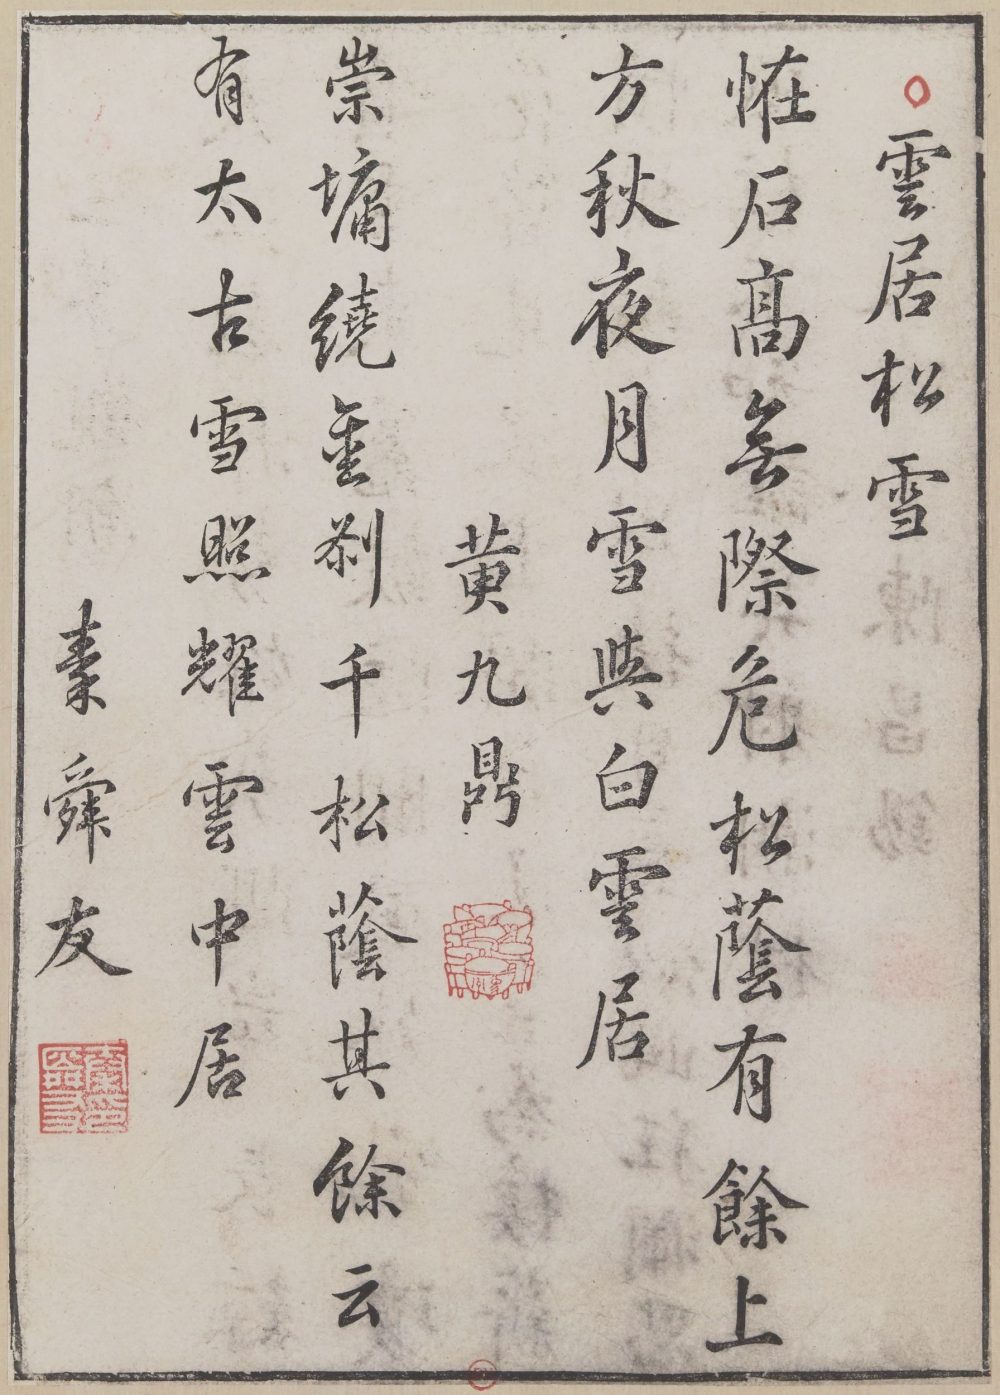 雲居松雪
恠石高無際危松蔭有餘上
方秋夜月雪與白雲居
黄九鼎
崇墉繞重刹千松蔭其餘云
有太古雪照耀雲中居
秦舜友